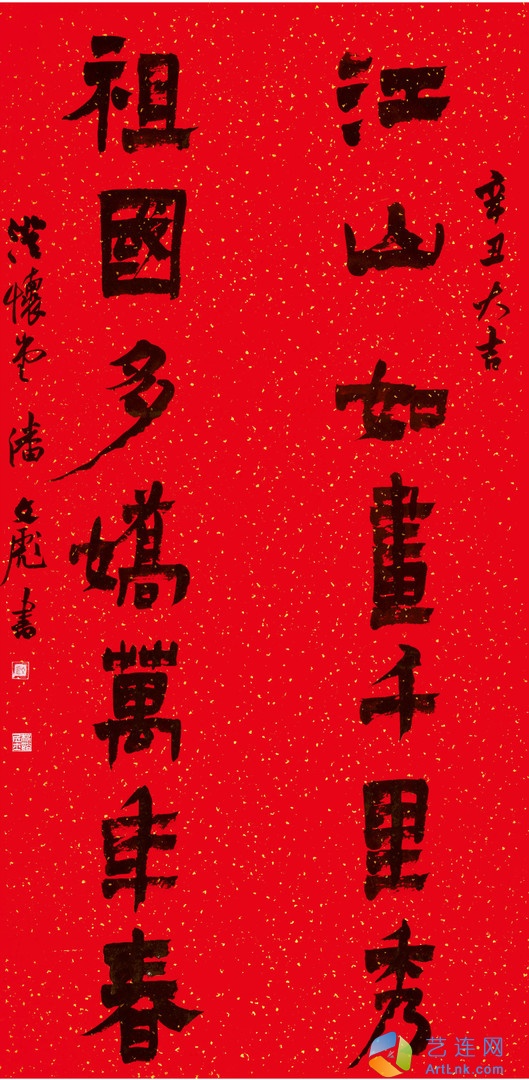 辛丑大吉
江山如畫千里秀
祖國多嬌萬年春
澄懷堂潘文彪書
艺连网
ArtLnk.com